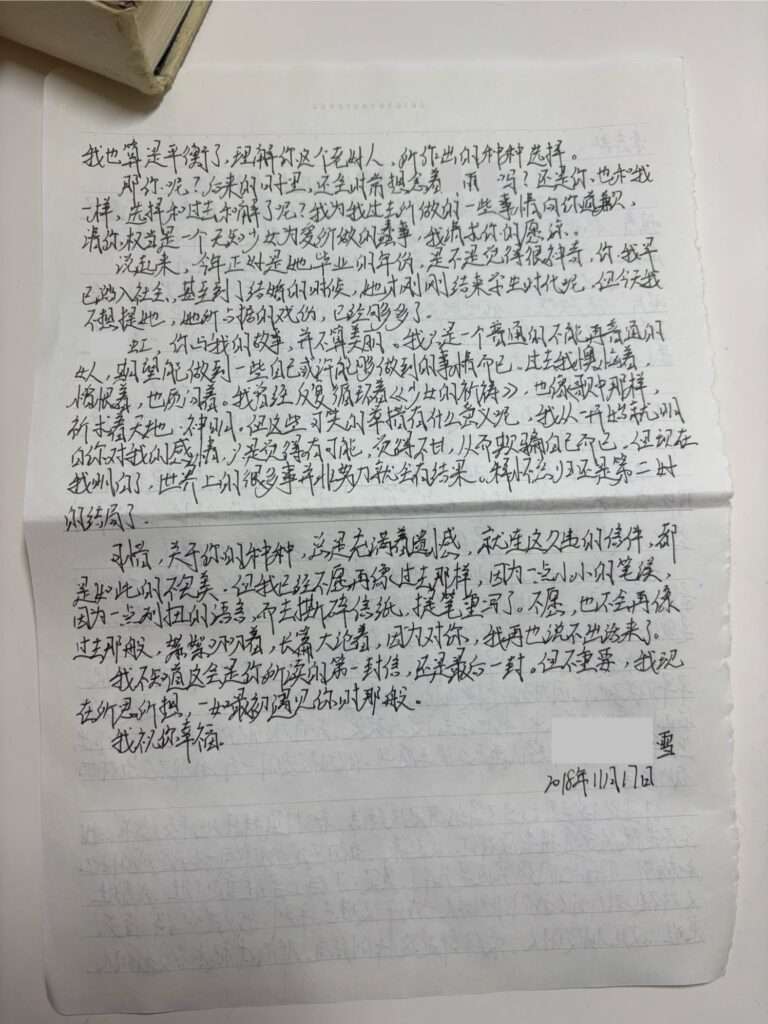 OURSTORYBEGINS
我也算是平衡了，理解你这个无时人，所作出的种种选择。
那你呢？后来的时里，还会时常想念着 雨 吗？还是你，也和我
一样，选择和过去和解了呢？我为我过去所做的一些事情向你道歉，
请你，权当是一个无知少女为爱所做的蠢事，我请求你的原谅。
说起来，今年正好是她毕业的年份，是不是觉得很神奇，你、我早
已踏入社会，甚至到了结婚的时候，她才刚刚结束学生时代呢，但今天我
不想提她，她所占据的戏份，已经够多了。
虹，你与我的故事，并不算美丽。我只是一个普通的不能再普通的
女人，期望能做到一些自己或许能够做到的事情而已。过去我懊恼着，
憎恨着，也质问着。我曾经反复循环着《少女的祈祷》，也像歌中那样，
祈求着天地、神明，但这些可笑的举措有什么意义呢，我从一开始就明
白你对我的感情，只是觉得有可能，觉得不甘，从而欺骗自己而已，但现在
我明白了，世界上的很多事并非努力就会有结果。释怀总归还是第二好
的结局了。
可惜，关于你的种种，总是充满着遗憾，就连这久违的信件，都
是如此的不完美。但我已经不愿再像过去那样，因为一点小小的笔误，
因为一点别扭的语言，而去撕碎信纸，提笔重写了。不愿，也不会再像
过去那般，絮絮叨叨着，长篇大论着，因为对你，我再也说不出话来了。
我不知道这会是你所读的第一封信，还是最后一封。但不重要，我现
在所思所想，一如最初遇见你时那般。
我祝你幸福。
雪
2018年11月17日